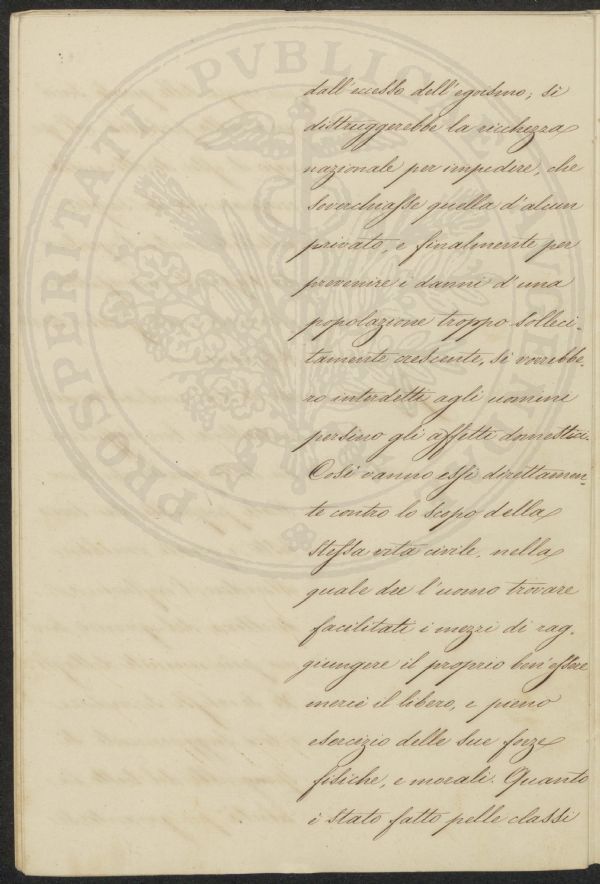 dall'eccesso dell'egoismo; si
distruggerebbe la ricchezza
nazionale per impedire, che
soverchiasse quella d'alcun
privato, e finalmente per
prevenire i danni d'una
popolazione troppo solleci-
tamente crescente, si vorrebbe-
ro interdetti agli uomini
persino gli affetti domestici.
Così vanno essi direttamen-
te contro lo scopo della
stessa vita civile, nella
quale dee l'uomo trovare
facilitati i mezzi di rag-
giungere il proprio ben'essere
mercè il libero, e pieno
esercizio delle sue forze
fisiche, e morali. Quanto
è stato fatto pelle classi
PROSPERITATI PVBLICAE